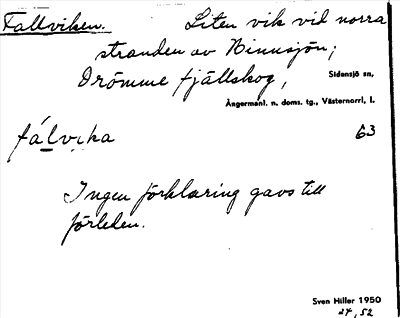 Fallviken. Liten vik vid norra
stranden av Binnsjön;
Drömme fjällskog, Sidensjö sn,
Ångermanl. n. doms. tg., Västernorrl, l.
fálvika 63
Ingen förklaring gavs till
förleden.
Sven Hiller 1950
27, 52